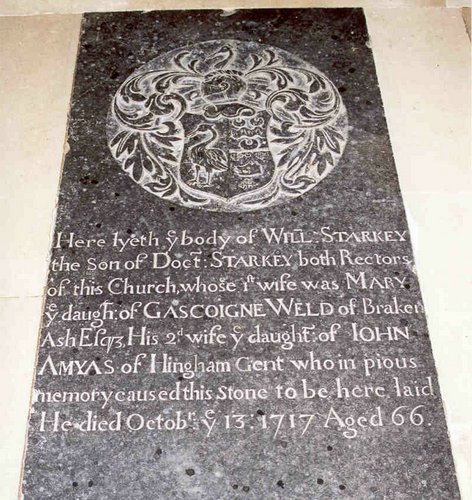 Here lyeth yᵉ body of WILLᵐ: STARKEY
the Son of Doctʳ: STARKEY both Rectors
of this Church, whose 1ˢᵗ wife was MARY
yᵉ daughʳ: of GASCOIGNE WELD of Braken
Ash Esqʒ, His 2ᵈ wife yᵉ daughtʳ: of IOHN
AMYAS of Hingham Gent who in pious
memory caused this Stone to be here laid
He died Octobʳ: yᵉ 13: 1717 Aged 66.